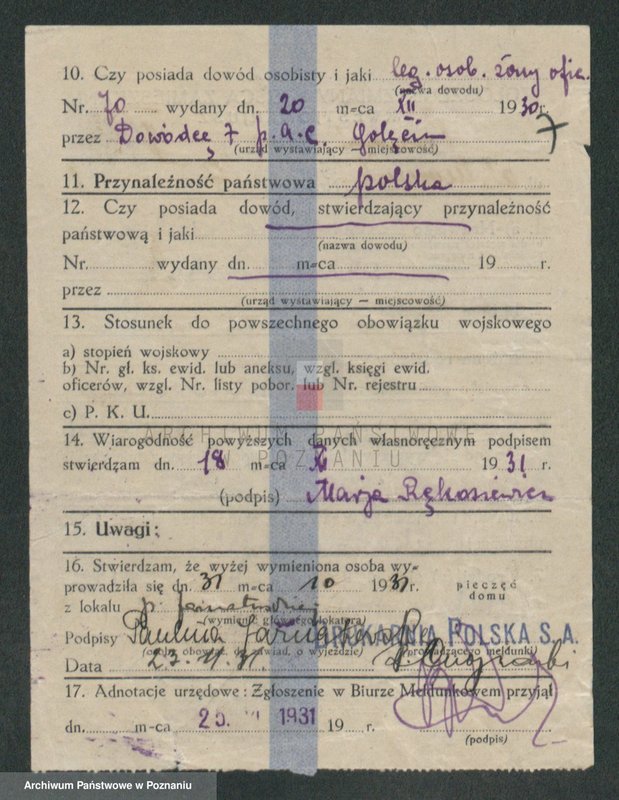 10. Czy posiada dowód osobisty i jaki leg. osob. żony ofic.
(nazwa dowodu)
Nr. 70 wydany dn. 20 m-ca XII 1930 r.
przez Dowódcę 7 p.a.c. Golęcin 7
(urząd wystawiający — miejscowość)
11. Przynależność państwowa polska
12. Czy posiada dowód, stwierdzający przynależność
państwową i jaki
(nazwa dowodu)
Nr. wydany dn. m-ca 19 r.
przez
(urząd wystawiający — miejscowość)
13. Stosunek do powszechnego obowiązku wojskowego
a) stopień wojskowy
b) Nr. gł. ks. ewid. lub aneksu, wzgl. księgi ewid.
oficerów, wzgl. Nr. listy pobor. lub Nr. rejestru
c) P. K. U.
ARCHIWUM PAŃSTWOWE
W POZNANIU
14. Wiarogodność powyższych danych własnoręcznym podpisem
stwierdzam dn. 18 m-ca XI 1931 r.
(podpis) Marja Rękosiewicz
15. Uwagi:
16. Stwierdzam, że wyżej wymieniona osoba wy-
prowadziła się dn. 31 m-ca 10 1931 r. pieczęć
domu
z lokalu p.
(wymienić głównego lokatora)
Podpisy Paulina DRUKARNIA POLSKA S.A.
(osoby obowiąz. do zawiad. o wyjeździe) (prowadzącego meldunki)
Data 23.11.31.
17. Adnotacje urzędowe: Zgłoszenie w Biurze Meldunkowem przyjął
dn. m-ca 25. XI 1931 19 r.
(podpis)
Archiwum Państwowe w Poznaniu